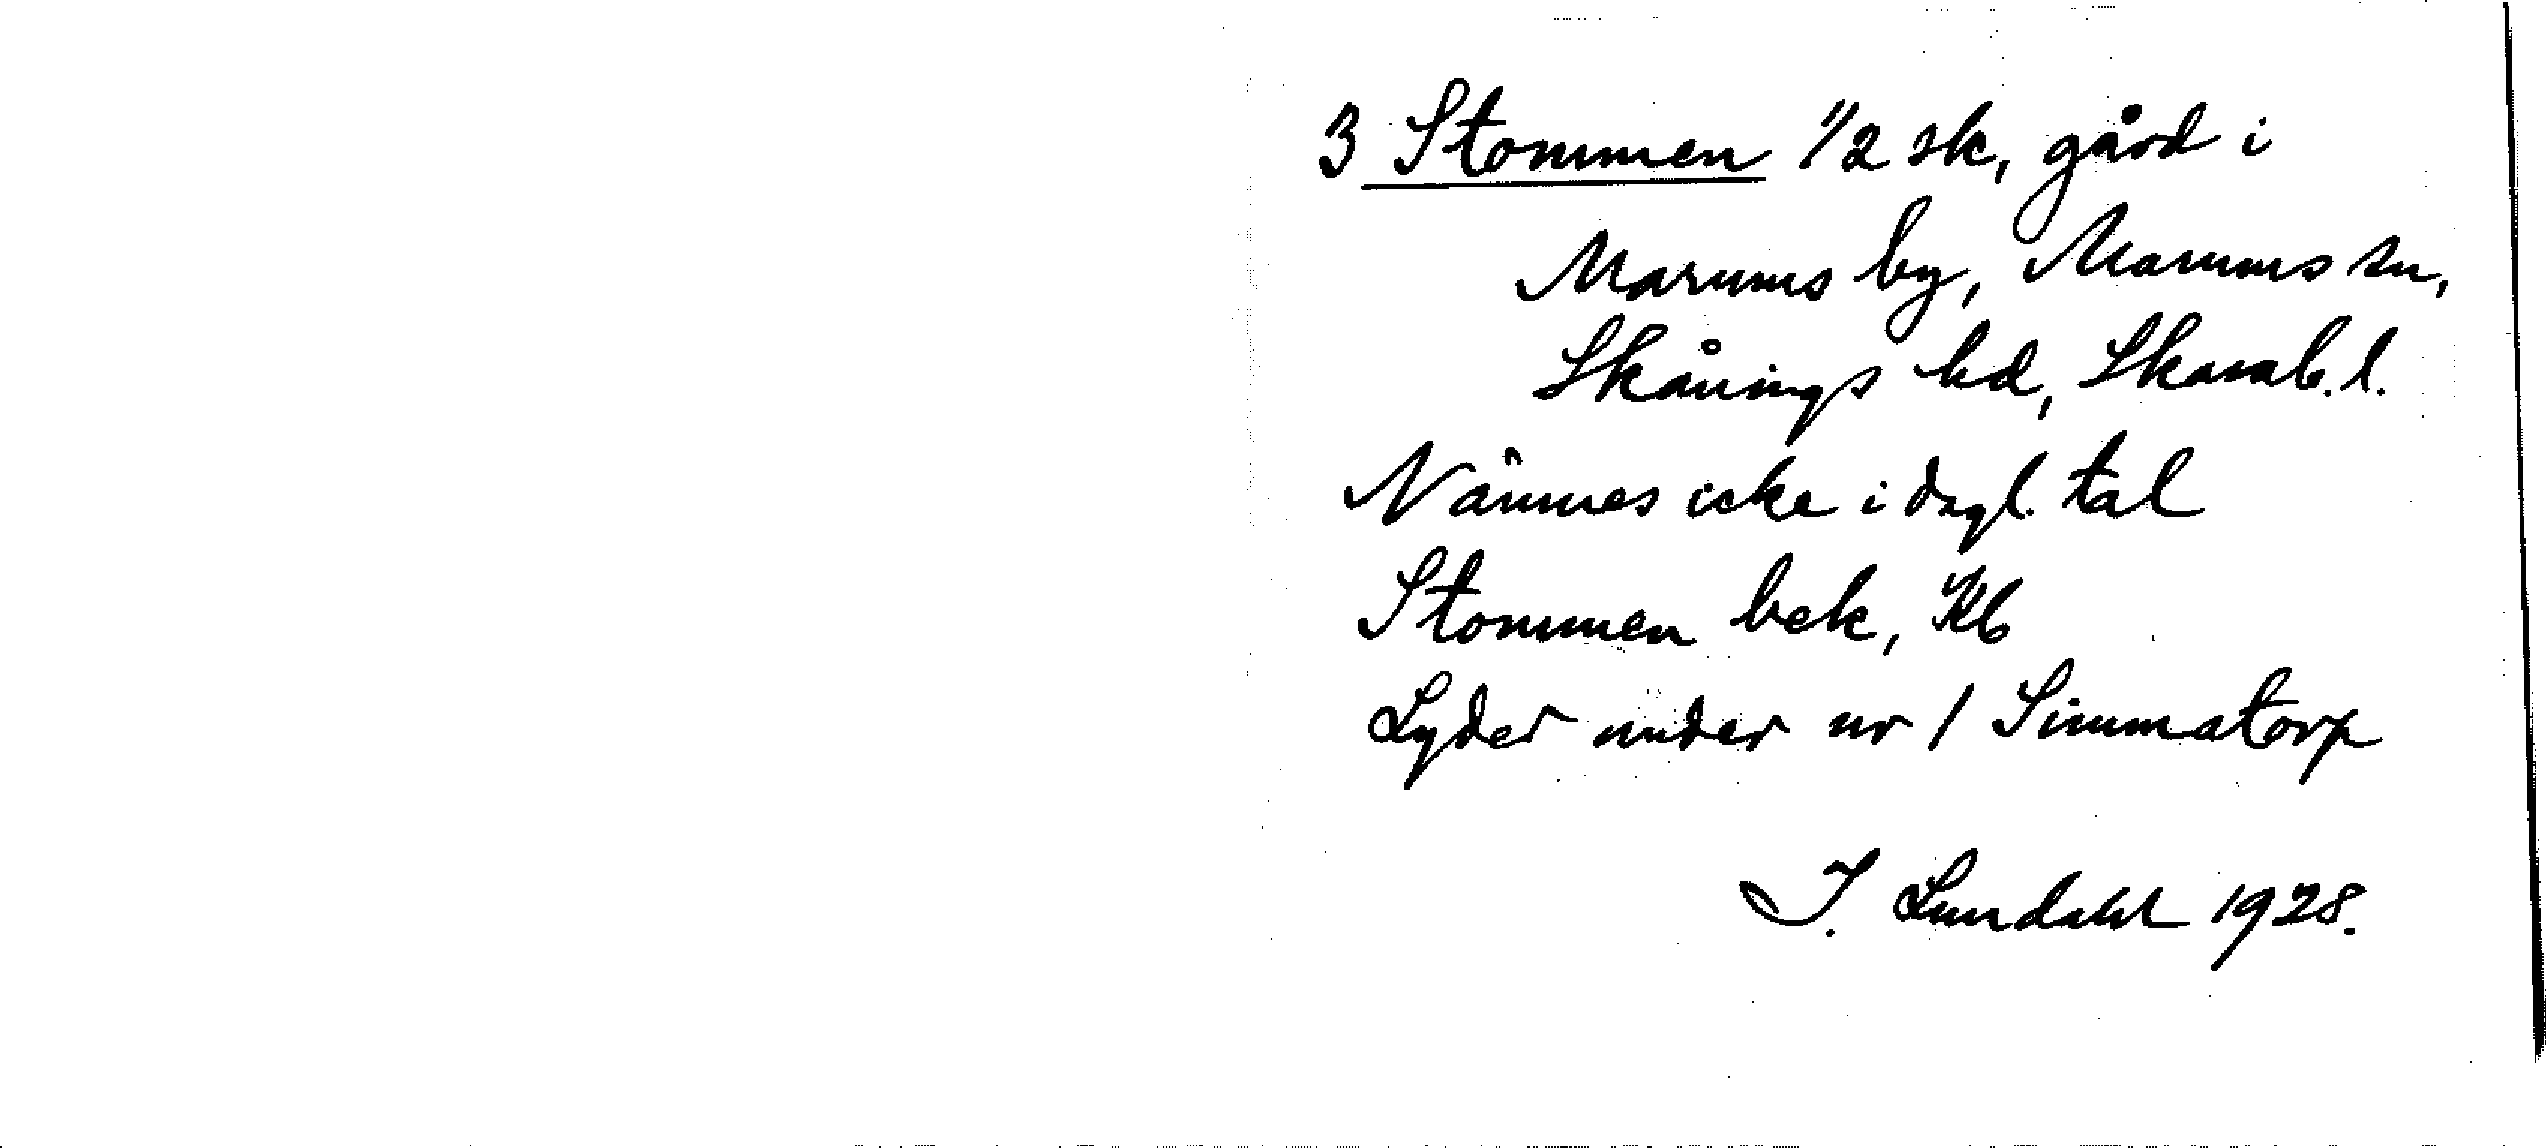 3 Stommen 1/2 sk, gård i
Marums by, Marums sn,
Skånings hd, Skarab. l.
Nämnes icke i dagl. tal
Stommen bek, Kb
Lyder under nr 1 Simmatorp
I. Lundahl 1928.